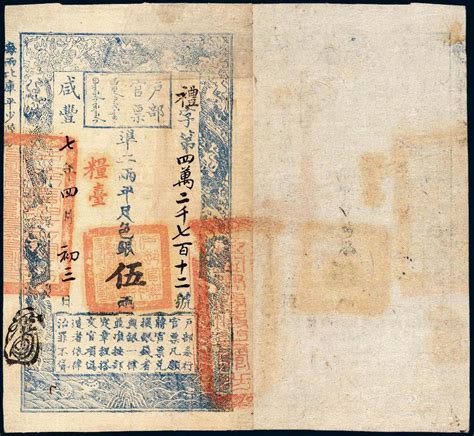 户部
官票
禮字第四萬二千七百十二號
準二兩平足色銀伍兩
糧臺
咸豐七年四月初三日
每兩比庫平少
户部奏行
官票凡願
將官票兌
換銀錢者
與銀一律
並准按部
定章程搭
交官項偽
造者依律
治罪不貸